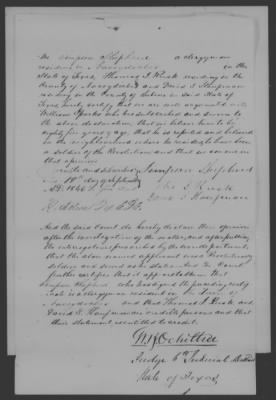 We Simpson Shepherd a clergyman
resident in Nacogdoches in the
State of Texas, Thomas J. Rusk residing in the
County of Nacogdoches and David S. Kaufman
residing in the County of Sabine in said State of
Texas hereby certify that we are well acquainted with
William Sparks who has subscribed and sworn to
the above declaration, that we believe him to be
eighty five years of age, that he is reputed and believed
in the neighbourhood where he resides to have been
a soldier of the Revolution and that we concur in
that opinion
Simpson Shepherd
Tho. J. Rusk
David S. Kaufman
And the said Court do hereby declare their opinion
after the investigation of the matter, and after putting
the interrogatories prescribed by the war department,
that the above named applicant was a Revolutionary
soldier and served as he states. And the Court
further certifies that it appears to them that
Simpson Shepherd who has signed the preceding certifi
cate is a clergyman resident in the Town of
Nacogdoches and that Thomas J. Rusk and
David S. Kaufman are credible persons and that
their statement is entitled to credit.
W. B. Ochiltree
Judge 6th Judicial District
State of Texas